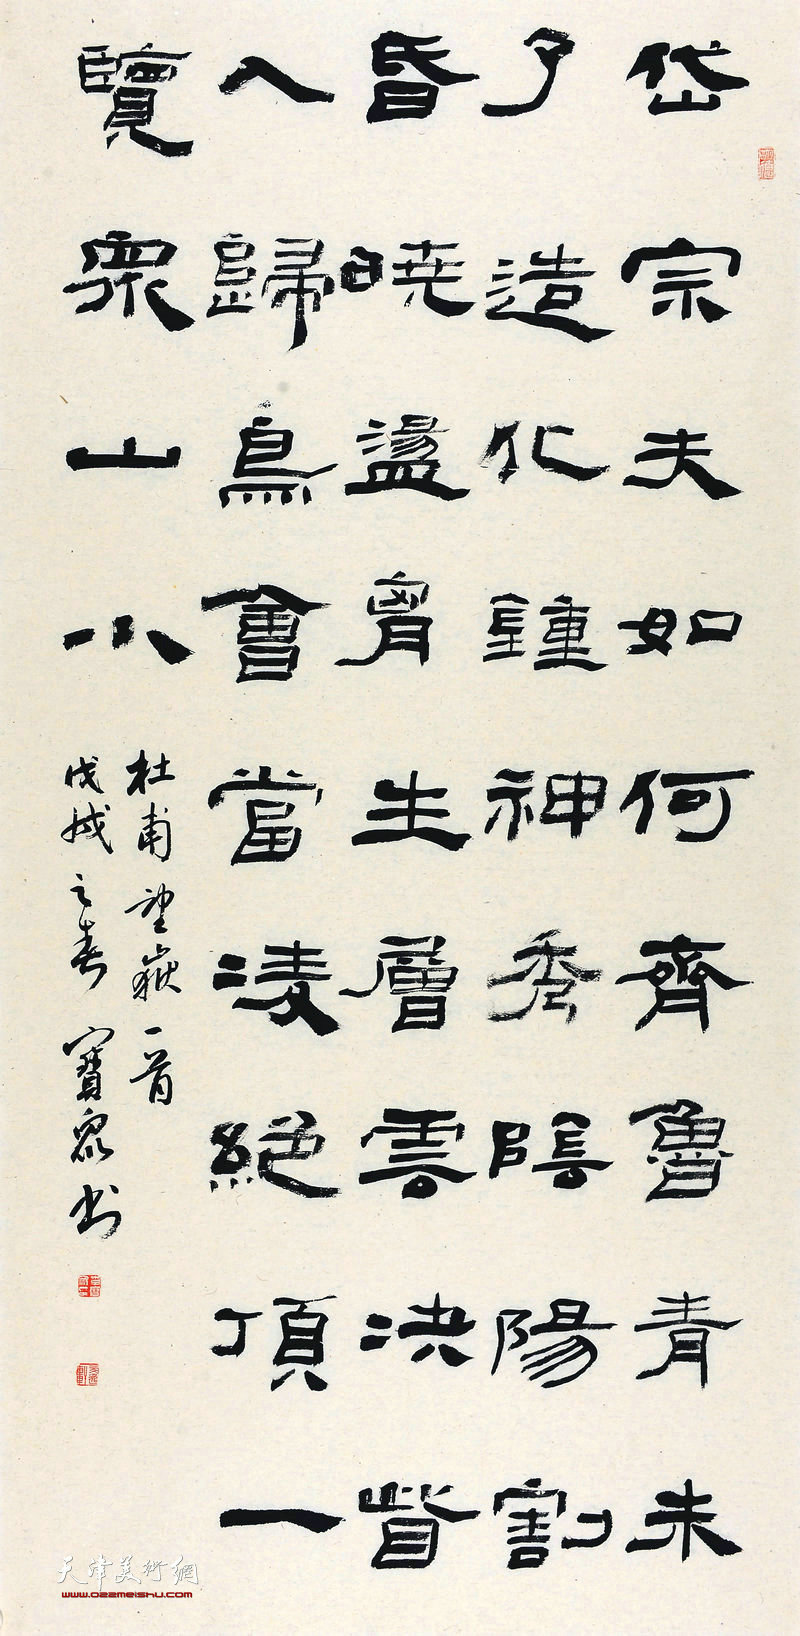 岱宗夫如何齊魯青未
了造化鍾神秀陰陽割
昏曉盪胷生層雲決眥
入歸鳥會當凌絕頂一
覽衆山小
杜甫望嶽一首
戊戌之春寶眾书
天津美術網
www.022meishu.com